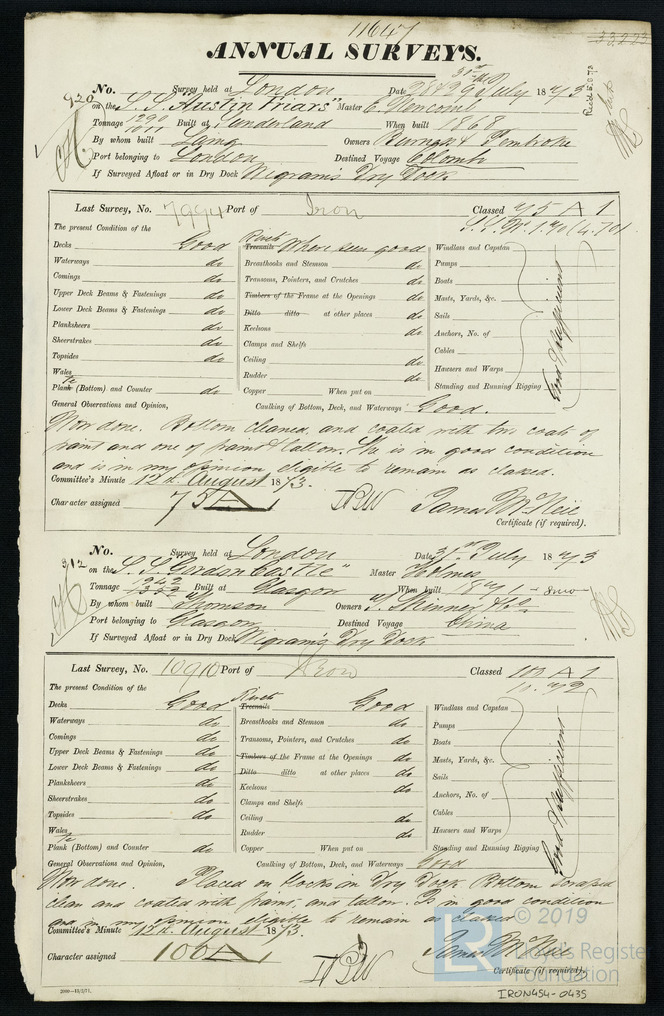 11647
ANNUAL SURVEYS.
No. Survey held at London Date 28 & 29 July 1873
31st
920 on the S.S. "Austin Friars" Master E.
Tonnage 1290 Built at Sunderland When built 1868
1011
By whom built Laing Owners & Pembroke
Port belonging to London Destined Voyage Colombo
If Surveyed Afloat or in Dry Dock Wigram's Dry Dock
Last Survey, No. 7994 Port of Iron Classed 75 A 1
The present Condition of the
Decks Good Rivets Treenails Where seen good Windlass and Capstan
Waterways do Breasthooks and Stemson do Pumps
Comings do Transoms, Pointers, and Crutches do Boats
Upper Deck Beams & Fastenings do Timbers of the Frame at the Openings do Masts, Yards, &c.
Lower Deck Beams & Fastenings do Ditto ditto at other places do Sails
Planksheers do Keelsons do Anchors, No. of
Sheerstrakes do Clamps and Shelfs Cables
Topsides do Ceiling do Hawsers and Warps
Wales Rudder do Standing and Running Rigging
Plank (Bottom) and Counter do Copper When put on Good & Efficient
General Observations and Opinion, Caulking of Bottom, Deck, and Waterways Good.
Now done. Bottom cleaned, and coated with two coats of
paint and one of paint & tallow. She is in good condition
and is in my opinion eligible to remain as classed.
Committee's Minute 12th August 1873.
Character assigned 75 A 1 James McNeil
Certificate (if required).
No. Survey held at London Date 31st July 1873
312 on the S.S. "Gordon Castle" Master Holmes
Tonnage 1942 Built at Glasgow When built 1871
By whom built Thomson Owners T. Skinner & Co
Port belonging to Glasgow Destined Voyage China
If Surveyed Afloat or in Dry Dock Wigram's Dry Dock
Last Survey, No. 10910 Port of Iron Classed 100 A 1
The present Condition of the
Decks Good Rivets Treenails Good Windlass and Capstan
Waterways do Breasthooks and Stemson do Pumps
Comings do Transoms, Pointers, and Crutches do Boats
Upper Deck Beams & Fastenings do Timbers of the Frame at the Openings do Masts, Yards, &c.
Lower Deck Beams & Fastenings do Ditto ditto at other places do Sails
Planksheers do Keelsons do Anchors, No. of
Sheerstrakes do Clamps and Shelfs Cables
Topsides do Ceiling do Hawsers and Warps
Wales Rudder do Standing and Running Rigging
Plank (Bottom) and Counter do Copper When put on Good & Efficient
General Observations and Opinion, Caulking of Bottom, Deck, and Waterways Good
Now done. Placed on blocks in Dry Dock Bottom scraped
clean and coated with paint, and tallow. Is in good condition
and in my opinion eligible to remain as classed
Committee's Minute 12th August 1873.
Character assigned 100 A 1 James McNeil
Certificate (if required).
2000—18/2/71.
IRON454-0435
© 2019
LR
Lloyd's Register
Foundation